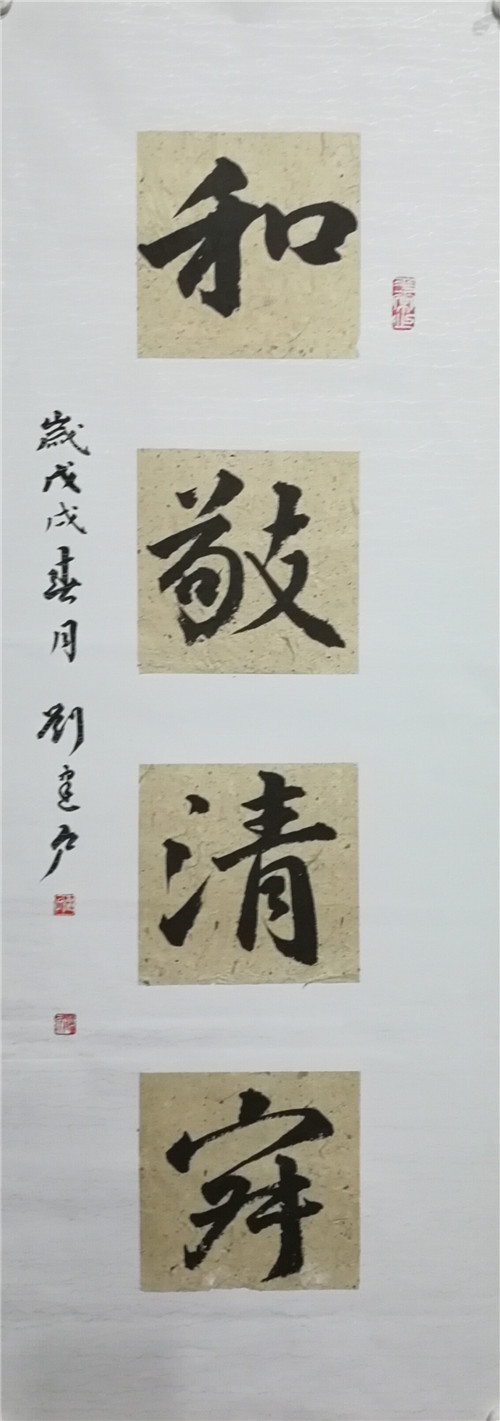 和
敬
清
寂
歲戊戌春月 劉建